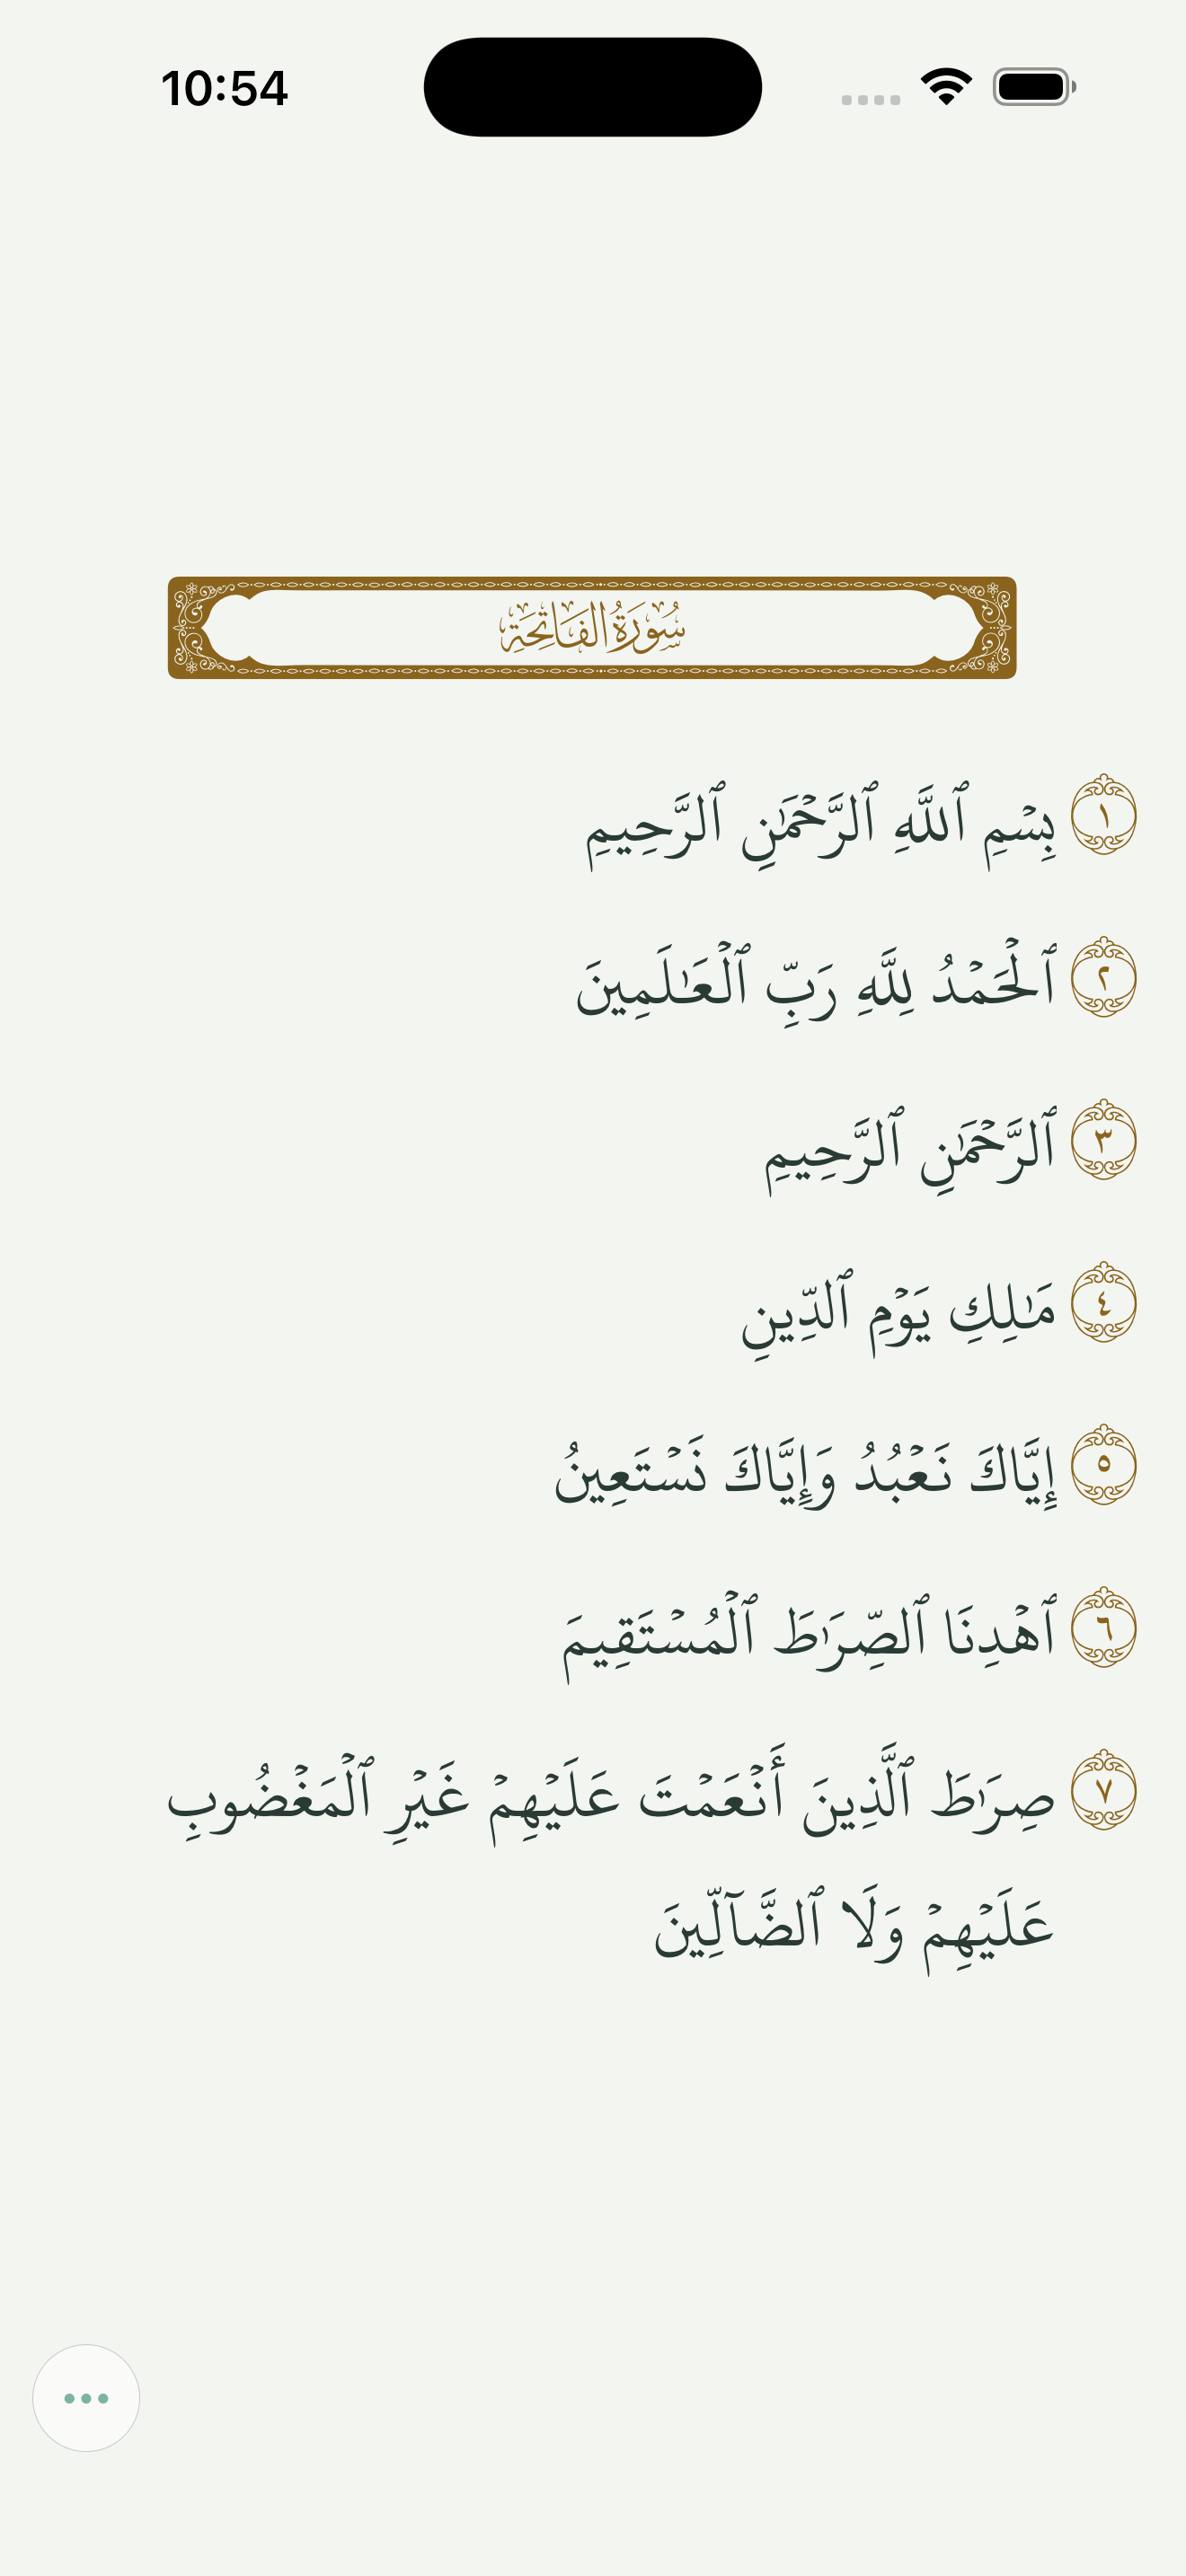 10:54
سُورَةُ الفَاتِحَةِ
١ بِسۡمِ ٱللَّهِ ٱلرَّحۡمَٰنِ ٱلرَّحِيمِ
٢ ٱلۡحَمۡدُ لِلَّهِ رَبِّ ٱلۡعَٰلَمِينَ
٣ ٱلرَّحۡمَٰنِ ٱلرَّحِيمِ
٤ مَٰلِكِ يَوۡمِ ٱلدِّينِ
٥ إِيَّاكَ نَعۡبُدُ وَإِيَّاكَ نَسۡتَعِينُ
٦ ٱهۡدِنَا ٱلصِّرَٰطَ ٱلۡمُسۡتَقِيمَ
٧ صِرَٰطَ ٱلَّذِينَ أَنۡعَمۡتَ عَلَيۡهِمۡ غَيۡرِ ٱلۡمَغۡضُوبِ
عَلَيۡهِمۡ وَلَا ٱلضَّآلِّينَ